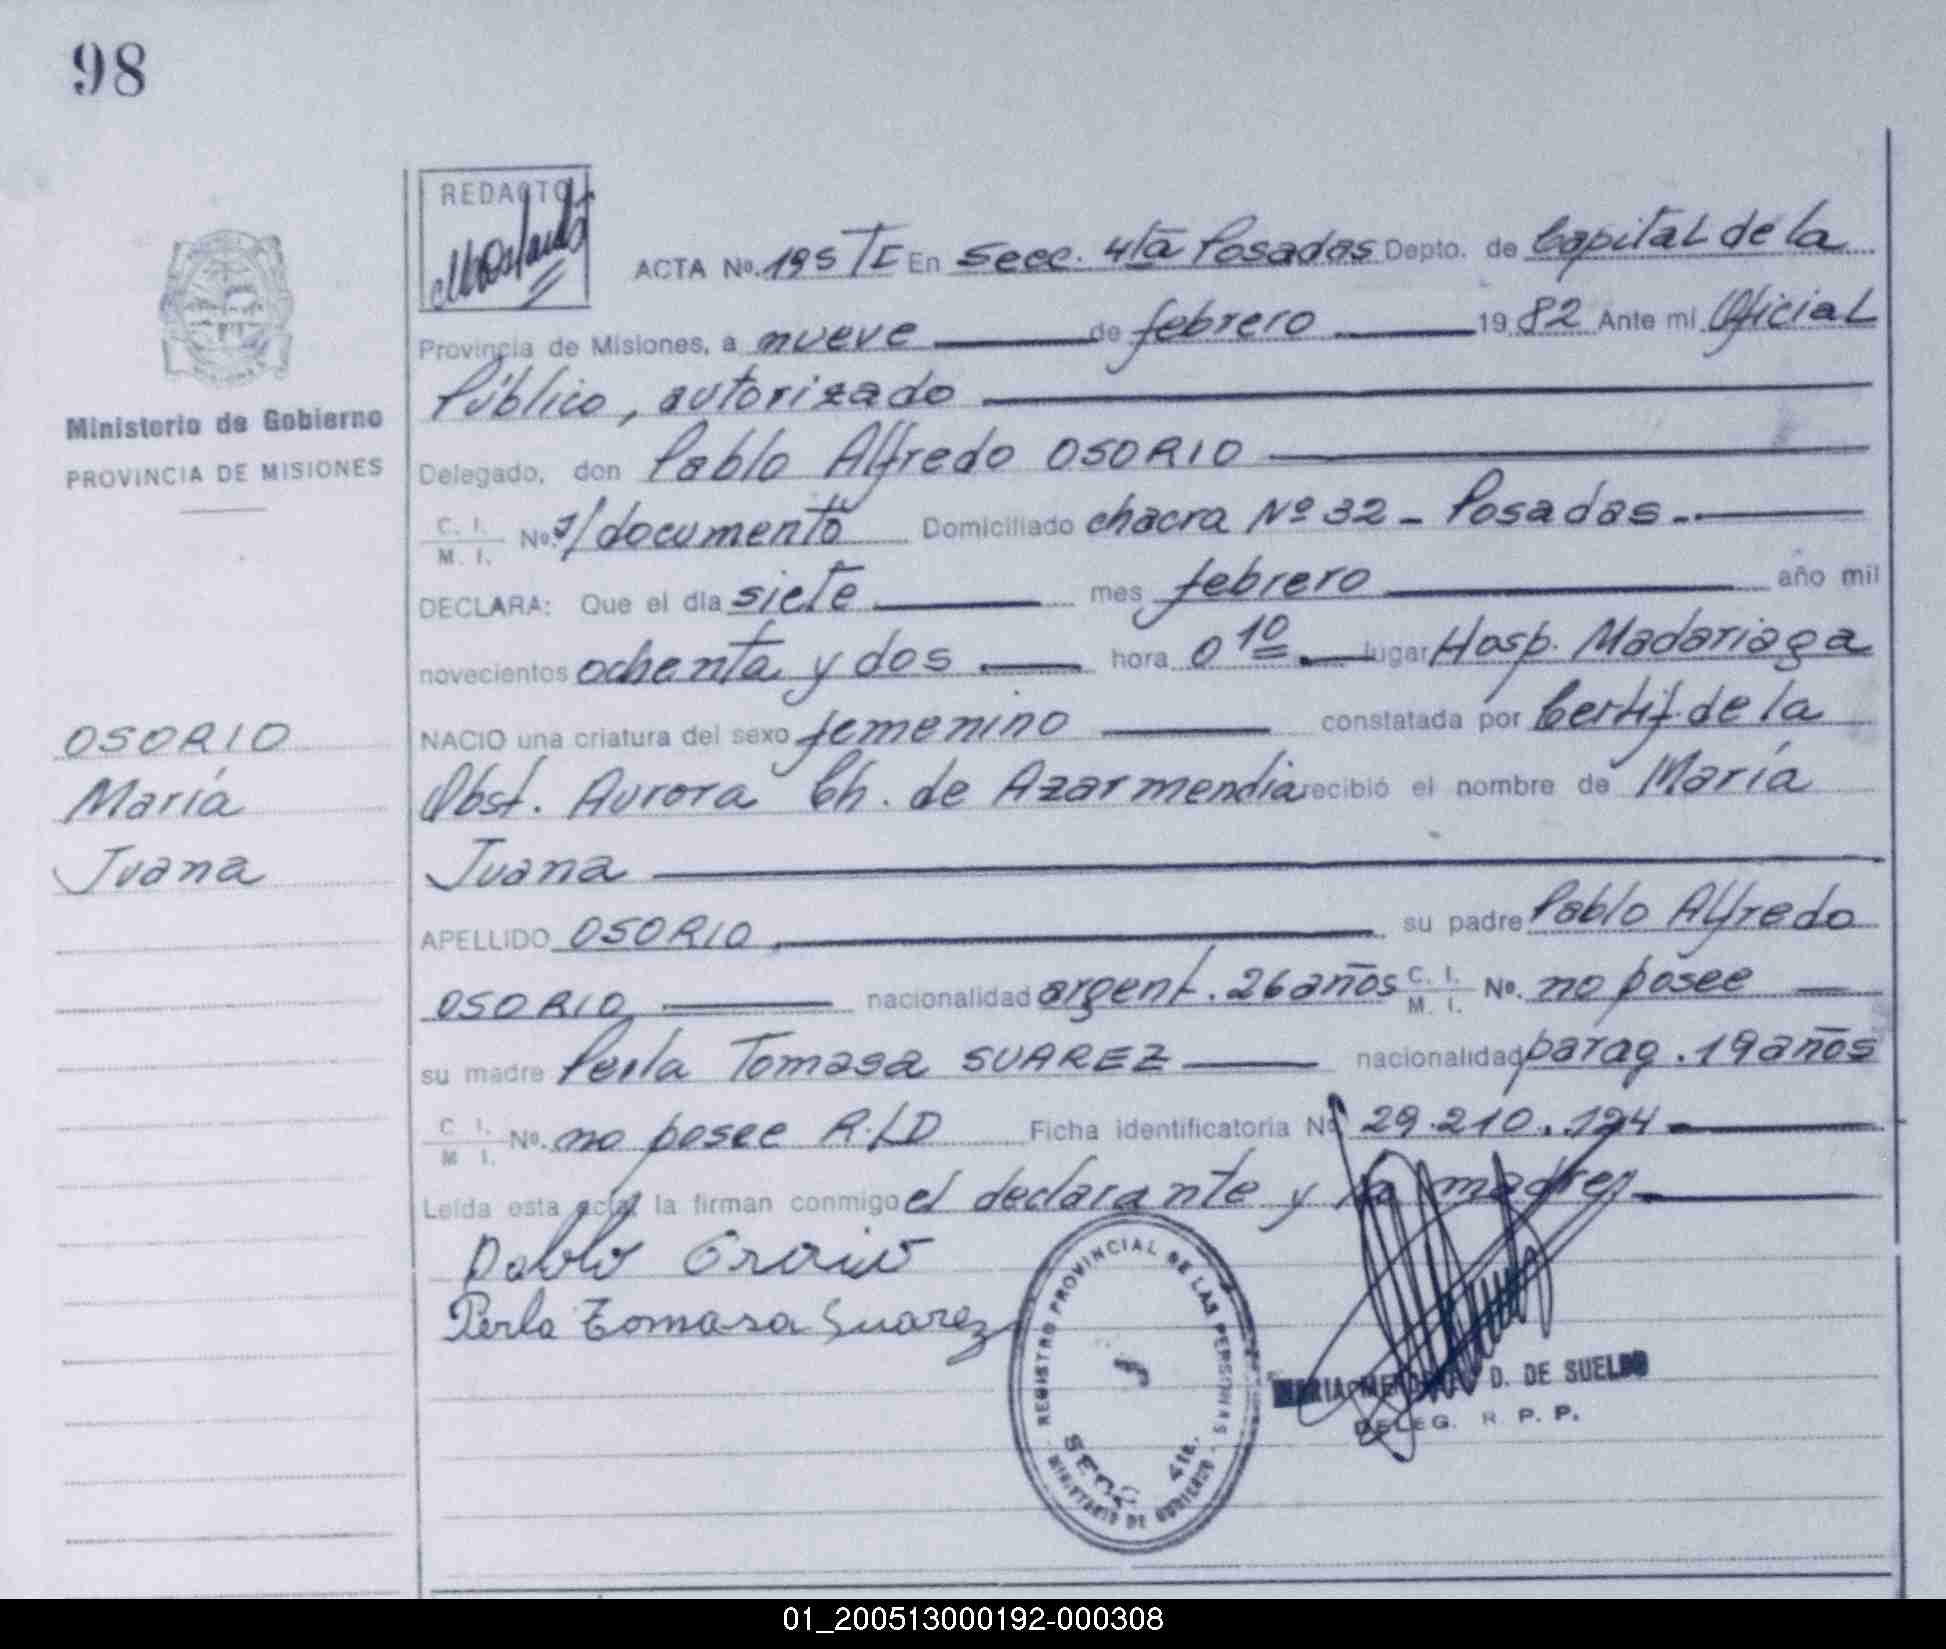 98
REDACTO
ACTA No. 195 TE En Secc. 4ta Posadas Depto. de Capital de la
Provincia de Misiones, a nueve de febrero 19 82 Ante mi Oficial
Público, autorizado
Ministerio de Gobierno
PROVINCIA DE MISIONES
Delegado, don Pablo Alfredo OSORIO
C. I.
M. I. No. s/documento Domiciliado chacra Nº 32 - Posadas.-
DECLARA: Que el día siete mes febrero año mil
novecientos ochenta y dos hora 0 10 lugar Hosp. Madariaga
OSORIO
María
Juana
NACIO una criatura del sexo femenino constatada por Certif. de la
Obst. Aurora Ch. de Azarmendia recibió el nombre de María
Juana
APELLIDO OSORIO, su padre Pablo Alfredo
OSORIO nacionalidad argent. 26 años C. I. M. I. No. no posee
su madre Perla Tomasa SUAREZ nacionalidad parag. 19 años
C. I.
M. I. No. no posee R.I.D Ficha identificatoria No 29.210.124
Leída esta acta, la firman conmigo el declarante y la madre,
Pablo Osorio
Perla Tomasa Suarez
REGISTRO PROVINCIAL DE LAS PERSONAS
SECC. 4ta.
MINISTERIO DE GOBIERNO
MARIA D. DE SUELDO
DELEG. R. P. P.
01_200513000192-000308